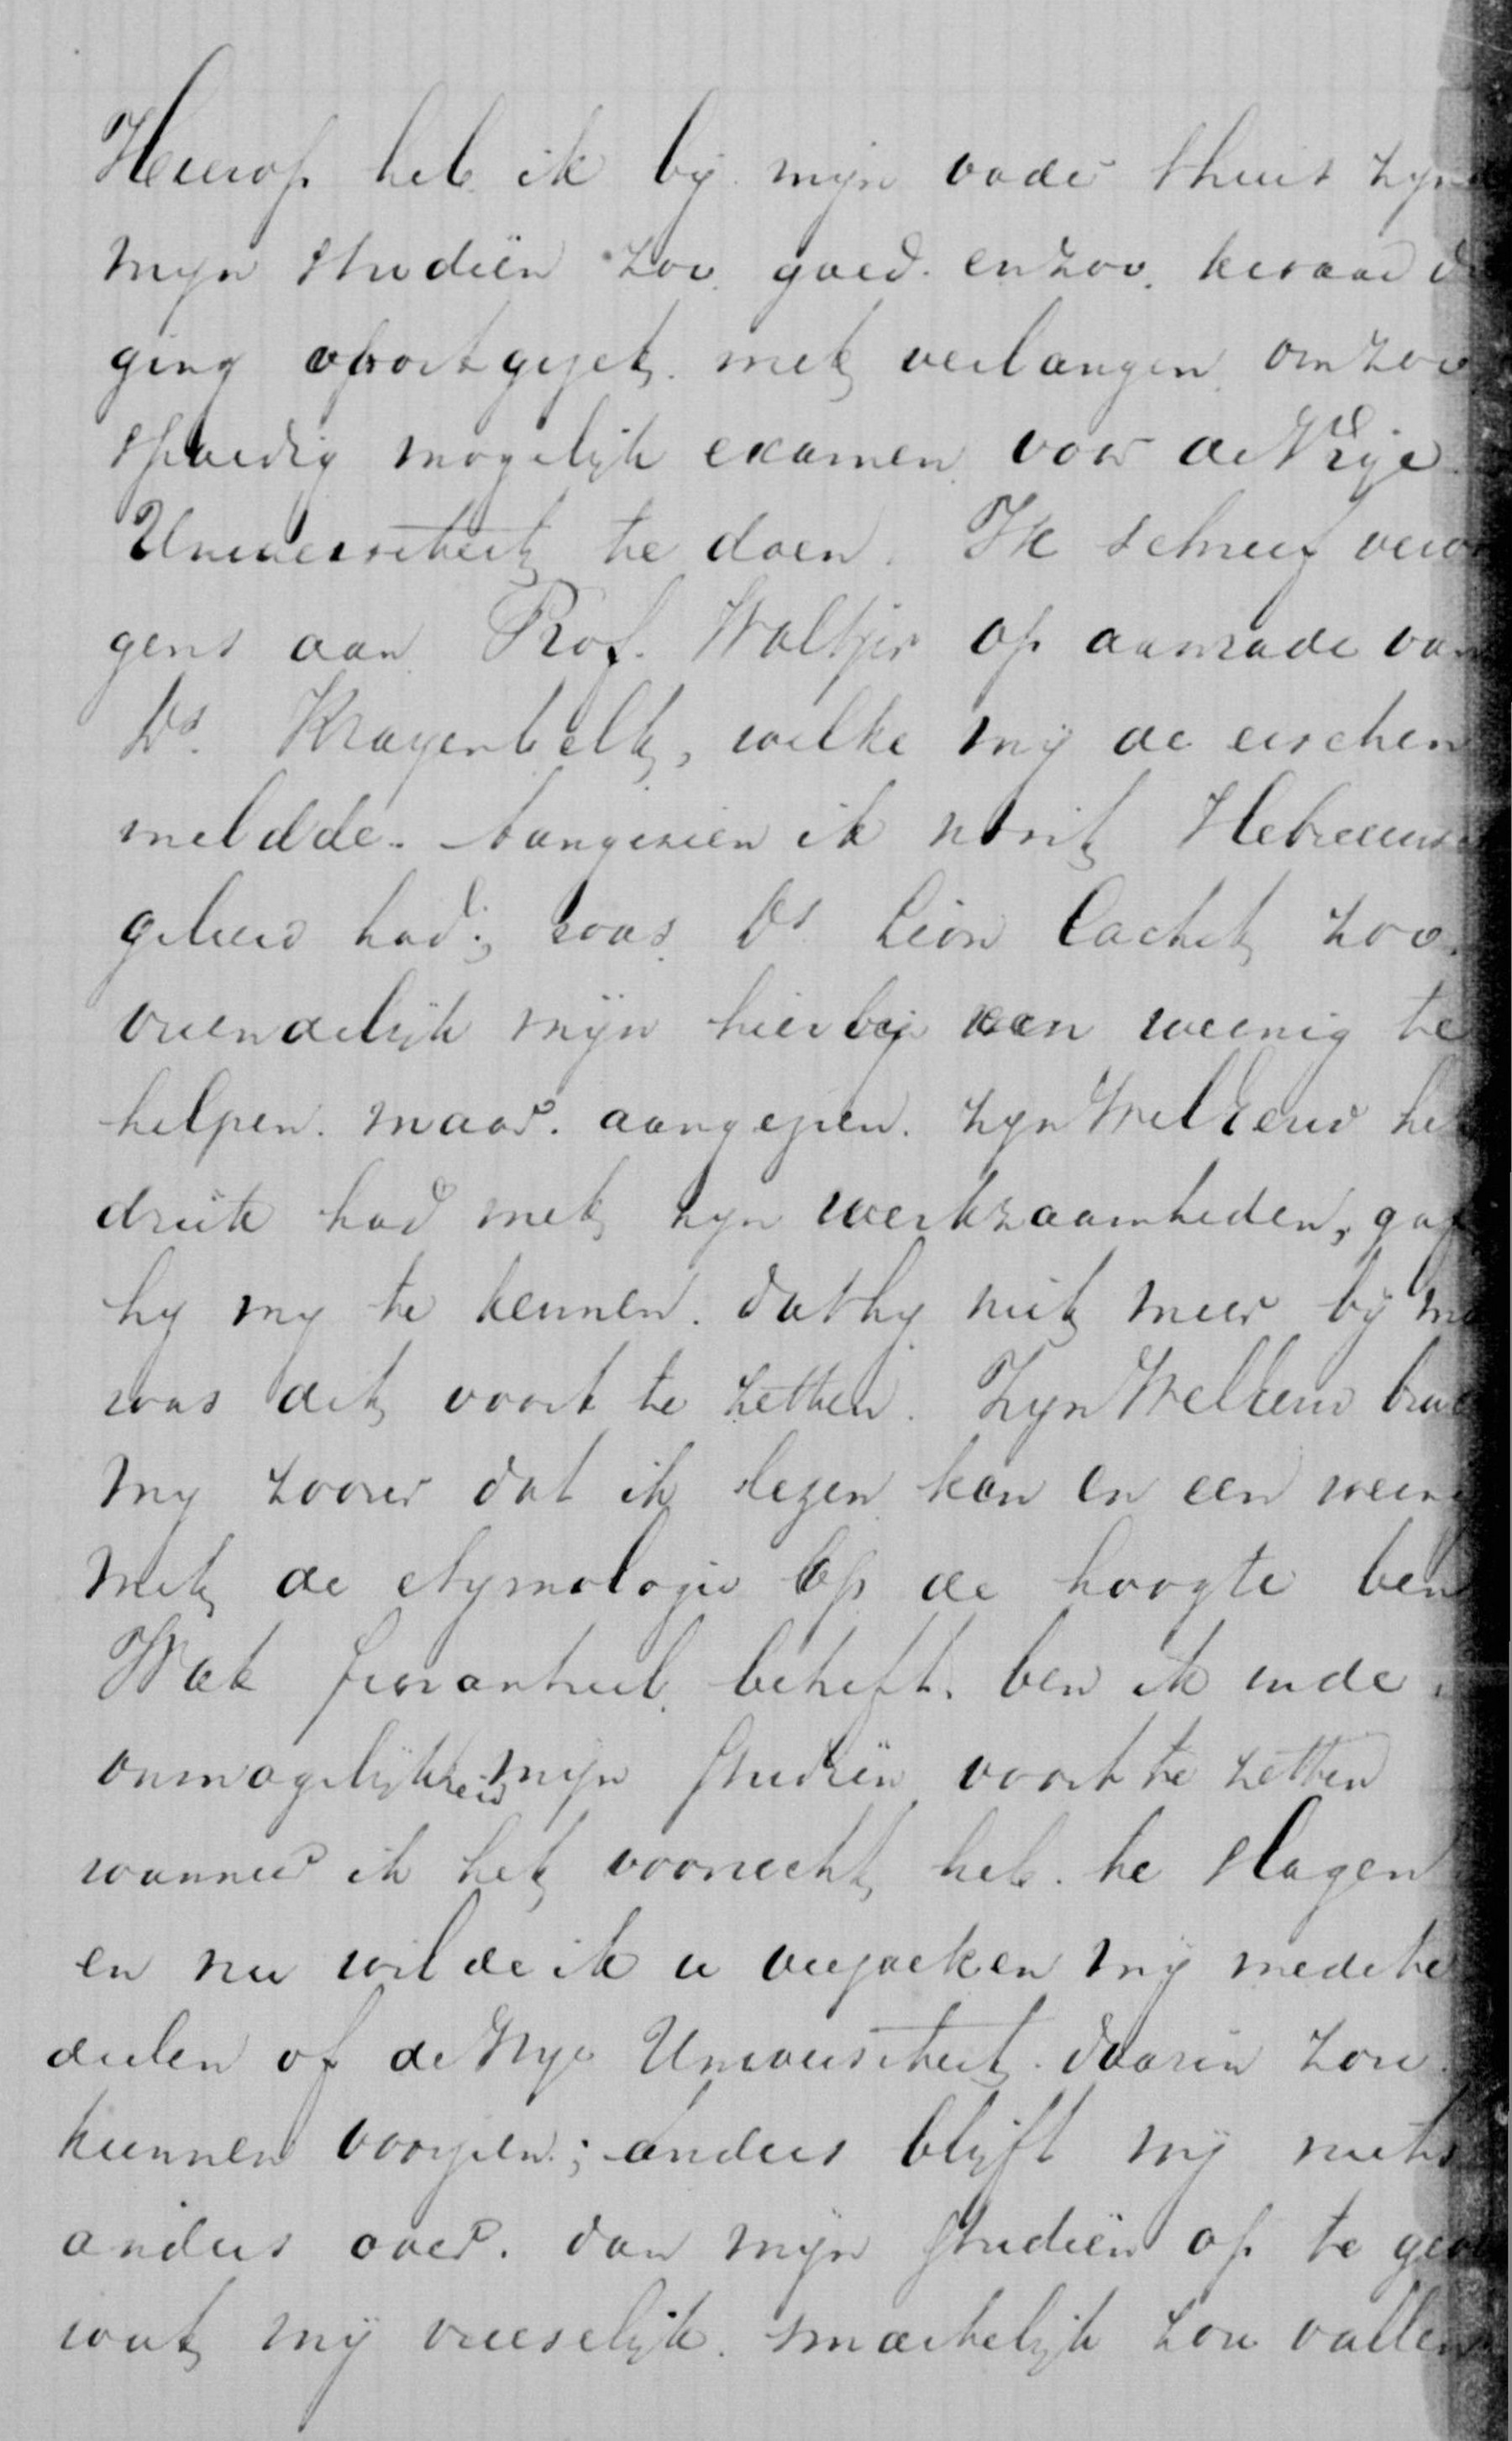 Hierop heb ik bij mijn vader thuis zijn
mijn studiën zoo goed en zoo kwaad d
ging voortgezet met verlangen om zoo
spoedig mogelijk examen voor de Vrije
Universiteit te doen. Ik schreef vervol
gens aan Prof. Woltjer op aanrade van
Ds. Krayenbelt, welke mij de eischen
meldde. Aangezien ik nooit Hebreeuwsc
geleerd had; was Ds Lion Cachet zoo
vriendelijk mijn hierbij een weinig te
helpen. maar. aangezien. zijn WelEerw he
druk had met zijn werkzaamheden, gaf
hy my te kennen. dat hy niet meer bij ma
was dit voort te zetten. Zijn WelEerw brac
my zoover dat ik lezen kan en een wein
met de etymologie op de hoogte ben
Wat financiëel betreft. ben ik in de
onmogelijkheid mijn studiën voort te zetten
wanneer ik het voorrecht heb. te slagen
en nu wilde ik u verzoeken mij mede te
deelen of de Vrije Universiteit daarin zou
kunnen voorzien; anders blijft mij niets
anders over. dan mijn studiën op te geve
wat mij vreeselijk smartelijk zou vallen